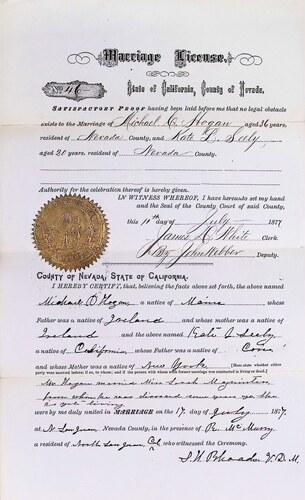 Marriage License.
No. 46
State of California, County of Nevada.
SATISFACTORY PROOF having been laid before me that no legal obstacle
exists to the Marriage of Michael C. Hogan aged 36 years,
resident of Nevada County, and Kate L. Seely
aged 20 years, resident of Nevada County.
Authority for the celebration thereof is hereby given.
IN WITNESS WHEREOF, I have hereunto set my hand
and the Seal of the County Court of said County,
this 10th day of July 1877
James White Clerk.
By John Webber Deputy.
COUNTY OF NEVADA, STATE OF CALIFORNIA.
I HEREBY CERTIFY, that, believing the facts above set forth, the above named
Michael Hogan a native of Maine whose
Father was a native of Ireland and whose mother was a native of
Ireland and the above named Kate L. Seely
a native of California whose Father was a native of Conn
and whose Mother was a native of New York
Mr Hogan married Miss Sarah
from whom he was divorced some years ago she
is yet living
were by me duly united in MARRIAGE on the 17 day of July 1877.
at N. San Juan Nevada County, in the presence of R. McMurry
a resident of North San Juan, Cal who witnessed the Ceremony.